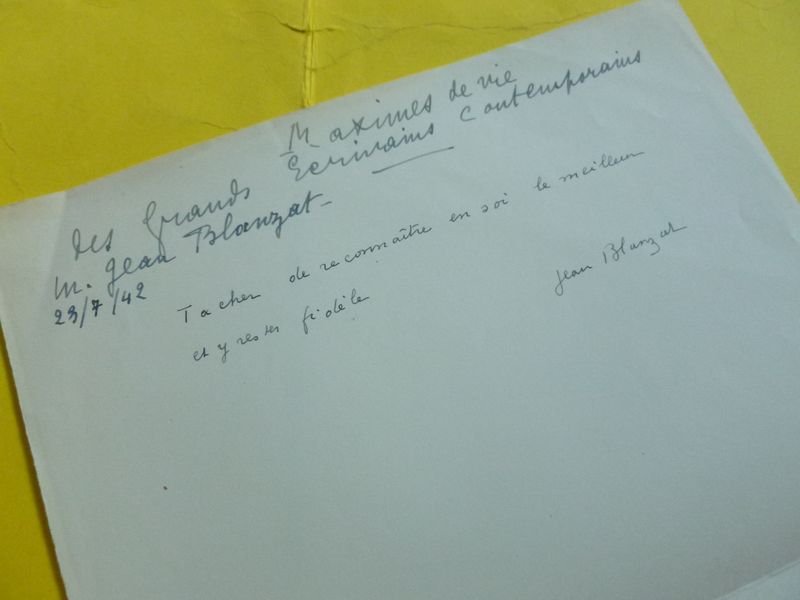 Maximes de vie
des grands Ecrivains Contemporains
M. Jean Blanzat -
23/7/42
Tacher de reconnaître en soi le meilleur
et y rester fidèle
Jean Blanzat